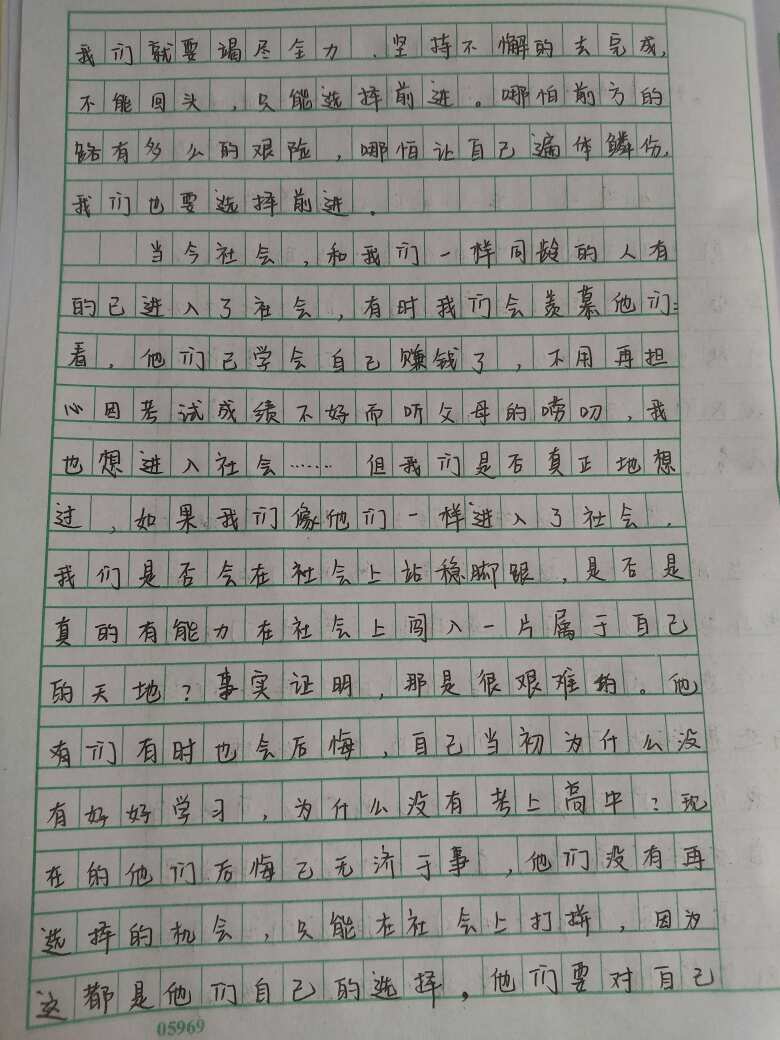 我们就要竭尽全力、坚持不懈的去完成,
不能回头，只能选择前进。哪怕前方的
路有多么的艰险，哪怕让自己遍体鳞伤,
我们也要选择前进。
当今社会，和我们一样同龄的人有
的已进入了社会，有时我们会羡慕他们:
看，他们已学会自己赚钱了，不用再担
心因考试成绩不好而听父母的唠叨，我
也想进入社会……但我们是否真正地想
过，如果我们像他们一样进入了社会，
我们是否会在社会上站稳脚跟，是否是
真的有能力在社会上闯入一片属于自己
的天地？事实证明，那是很艰难的。他
有们有时也会后悔，自己当初为什么没
有好好学习，为什么没有考上高中？现
在的他们后悔已无济于事，他们没有再
选择的机会，只能在社会上打拼，因为
这都是他们自己的选择，他们要对自己
05969